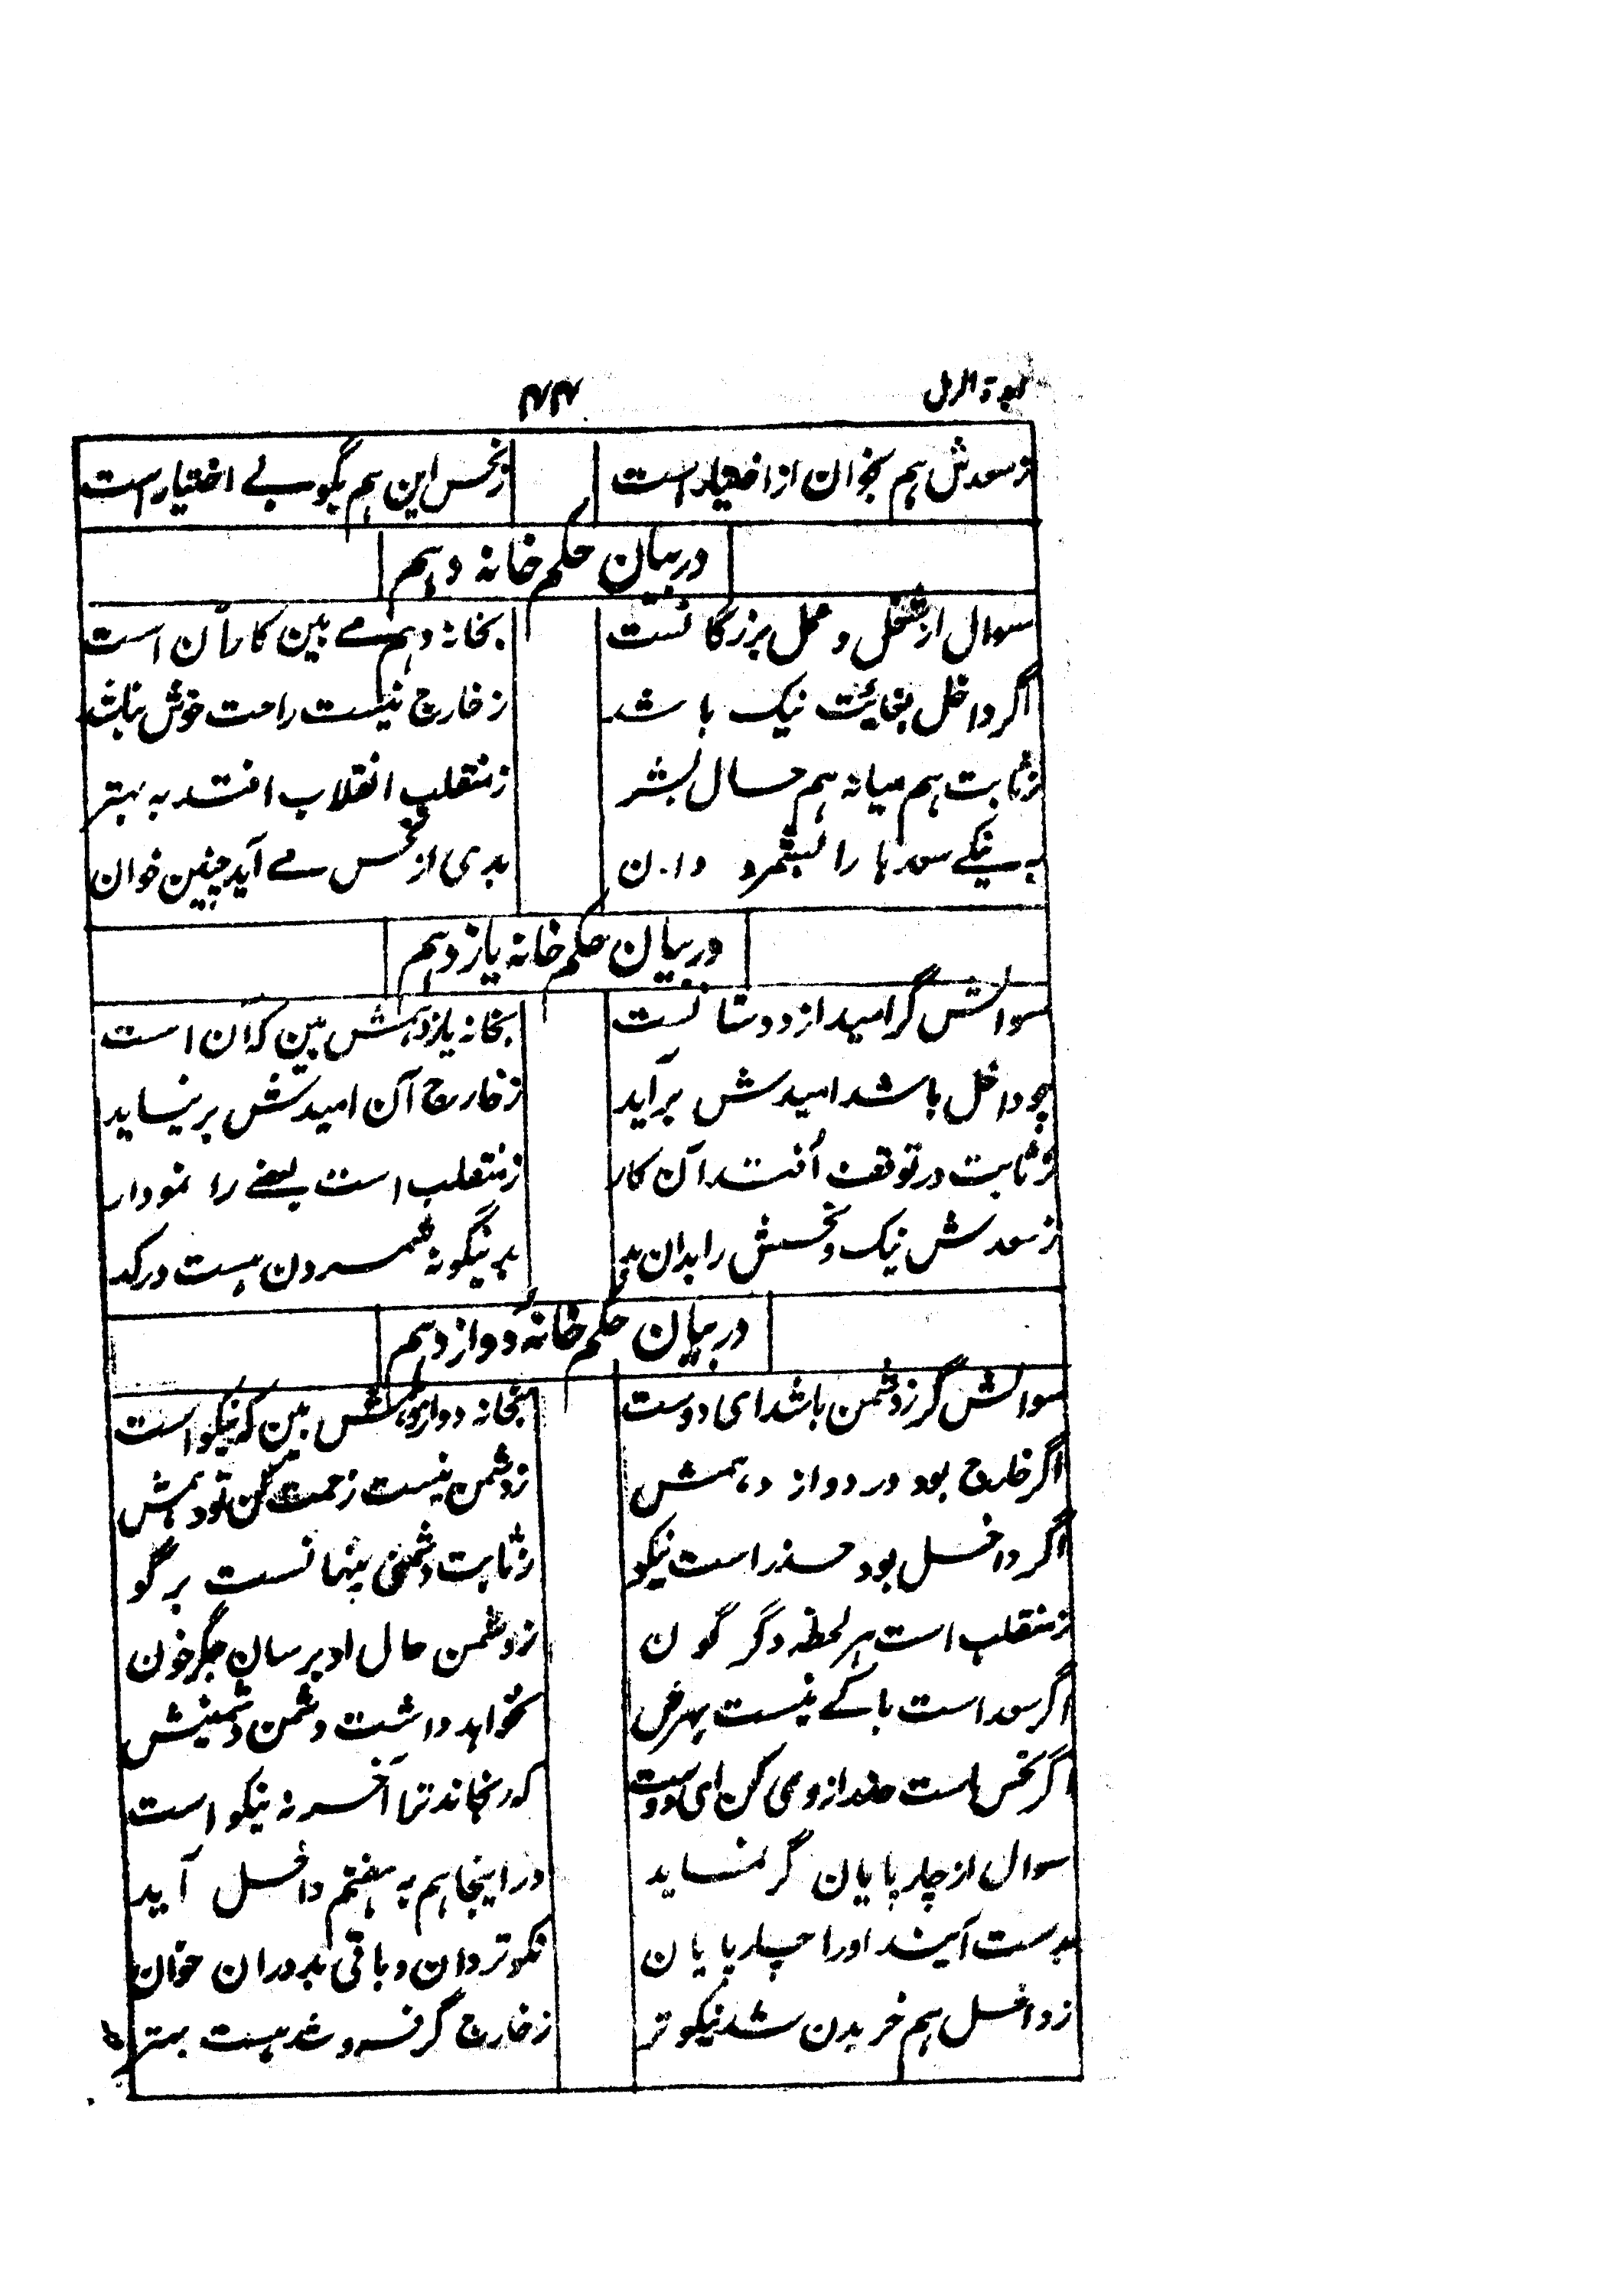 ۴۴
ز سعدش هم بخوان از اختیار است ز نحس این هم بگو بے اختیار است
در بیان حکم خانه دهم
سوال از شغل و عمل بزرگانست بخانه دهم مے بین کارآن است
اگر داخل بغایت نیک باشد ز خارج نیست راحت خوش نباشد
ز ثابت هم میانه هم حال بشر ز منقلب انقلاب افتد به بهتر
به نیکے سعدها را بشمرد دان بدی از نحس مے آید چنین خوان
در بیان حکم خانه یازدهم
سوالش گر امید از دوستانست بخانه یازدهمش بین که آن است
چو داخل باشد امیدش برآید ز خارج آن امیدش برنیاید
ز ثابت در توقف اُفتد آن کار ز منقلب است بعضے را نمودار
ز سعدش نیک و نحسش را بدان بد بدینگونه شمردن هست در کد
در بیان حکم خانهٔ دوازدهم
سوالش گر ز دشمن باشد ای دوست بخانه دوازدهمش بین که نیکو است
اگر خارج بود در دوازدهمش ز دشمن نیست زحمت کن تو دهمش
اگر داخل بود حذر است نیکو ز ثابت دشمنی پنهانست برگو
ز منقلب است هر لحظه دگرگون ز دشمن حال او پرسان جگر خون
اگر سعد است باکے نیست بهرض نخواهد داشت دشمن دشمنیش
اگر نحس است حذر از وی کن ای دوست که رنجاند ترا آخر نه نیکو است
سوال از چارپایان گر نماید در اینجا هم به هفتم داخل آید
بدست آیند اورا چارپایان نکوتر دان و باقی بد دران خوان
ز داخل هم خریدن شد نیکوتر ز خارج گر فروشد هست بهتر